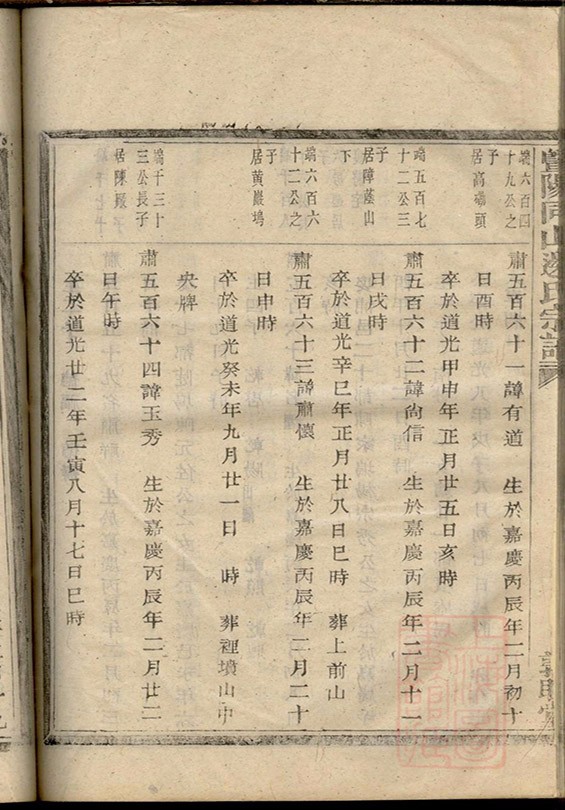 暨陽同山邊氏宗譜
端六百四
十九公之
子
居高𡇼頭
肅五百六十一諱有道 生於嘉慶丙辰年二月初十
日酉時
卒於道光甲申年正月廿五日亥時
端五百七
十二公三
子
居障蓋山
下
肅五百六十二諱尙信 生於嘉慶丙辰年二月十一
日戌時
卒於道光辛巳年正月廿八日巳時 葬上前山
端六百六
十二公之
子
居黄巖塢
肅五百六十三諱肅懷 生於嘉慶丙辰年二月二十
日申時
卒於道光癸未年九月廿一日 時 葬裡墳山中
央牌
端千三十
三公長子
居陳殿
肅五百六十四諱玉秀 生於嘉慶丙辰年二月廿二
日午時
卒於道光廿二年壬寅八月十七日巳時